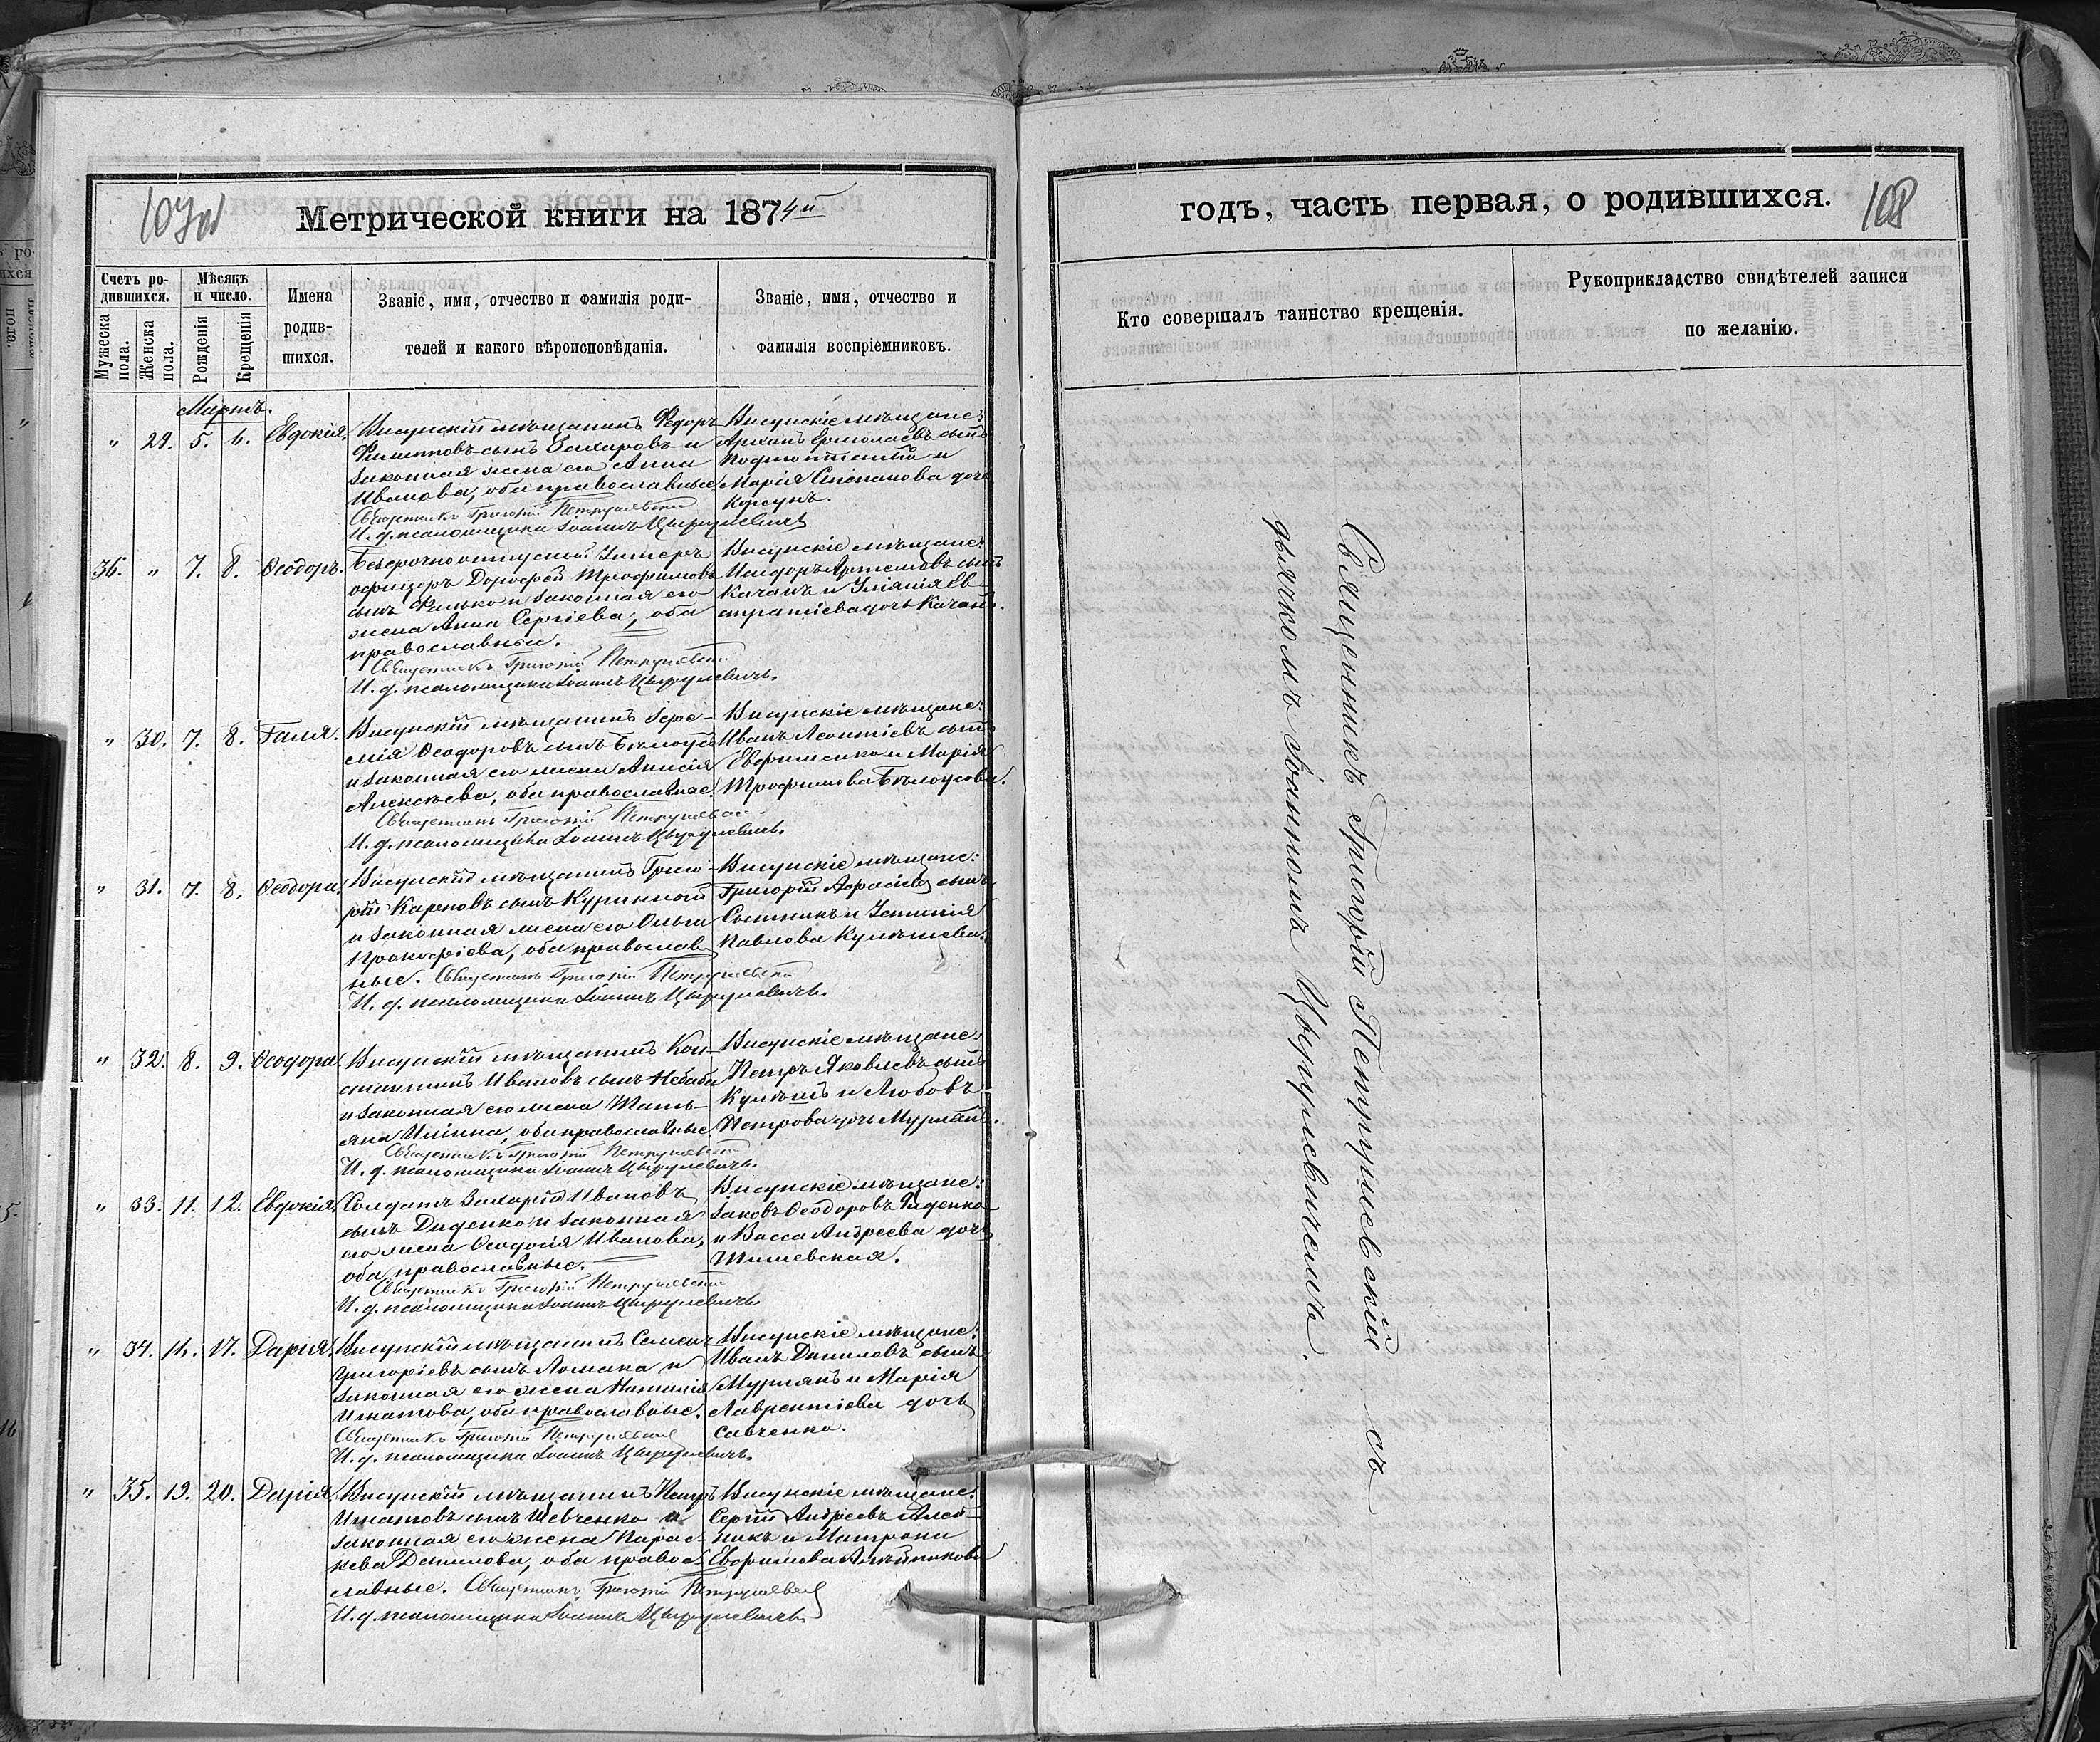 107об
Метрической книги на 1874й
Счетъ ро-
дившихся.
Мѣсяцъ
и число.
Мужеска
пола.
Женска
пола.
Рожденія
Крещенія
Имена
родив-
шихся.
Званіе, имя, отчество и фамилія роди-
телей и какого вѣроисповѣданія.
Званіе, имя, отчество и
фамилія воспріемниковъ.
Мартъ.
" 29. 5. 6. Евдокія.
Висунскій мѣщанинъ Федоръ
Филиповъ сынъ Захаровъ и
законная жена его Анна
Иванова, оба православные
Священникъ Григорій Петрушевскій
И. д. псаломщика Іоаннъ Цырулевичъ
Висунскіе мѣщане:
Архипъ Ермолаевъ сынъ
и
Марія Степанова дочь
Корсунъ.
36. " 7. 8. Ѳеодоръ.
Безсрочноотпускной Унтеръ
офицеръ Дорофей Трофимовъ
сынъ Фалько и законная его
жена Анна Сергіева, оба
православные.
Священникъ Григорій Петрушевскій
И. д. псаломщика Іоаннъ Цырулевичъ.
Висунскіе мѣщане:
Исидоръ Артемовъ сынъ
Качанъ и Уліянія Ев-
стратіева дочь Качанъ.
" 30. 7. 8. Галя.
Висунскій мѣщанинъ Іере-
мія Ѳеодоровъ сынъ Бѣлоусъ
и законная его жена Анисія
Алексѣева, оба православные.
Священникъ Григорій Петрушевскій
И. д. псаломщика Іоаннъ Цырулевичъ.
Висунскіе мѣщане:
Иванъ Леонтіевъ сынъ
Ефименко и Марія
Трофимова Бѣлоусова.
" 31. 7. 8. Ѳеодора.
Висунскій мѣщанинъ Григо-
рій Карповъ сынъ Куринной
и законная жена его Ольга
Прокофіева, оба православ
ные. Священникъ Григорій Петрушевскій
И. д. псаломщика Іоаннъ Цырулевичъ.
Висунскіе мѣщане:
Григорій сынъ
и Устинія
Павлова
" 32. 8. 9. Ѳеодора.
Висунскій мѣщанинъ Кон-
стантинъ Ивановъ сынъ Небаба
и законная его жена Тать-
яна Ильина, оба православные
Священникъ Григорій Петрушевскій
И. д. псаломщика Іоаннъ Цырулевичъ.
Висунскіе мѣщане:
Петръ Яковлевъ сынъ
и Любовь
Петрова дочь
" 33. 11. 12. Евдокія.
Солдатъ Захарій Ивановъ
сынъ Диденко и законная
его жена Ѳеодосія Иванова,
оба православные.
Священникъ Григорій Петрушевскій
И. д. псаломщика Іоаннъ Цырулевичъ
Висунскіе мѣщане:
Іаковъ Ѳеодоровъ Диденко
и Васса Андреева дочь
Шишевская.
" 34. 16. 17. Дарія.
Висунскій мѣщанинъ Семенъ
Григоріевъ сынъ Ломака и
законная его жена Наталія
Игнатова, оба православные.
Священникъ Григорій Петрушевскій
И. д. псаломщика Іоаннъ Цырулевичъ.
Висунскіе мѣщане:
Иванъ Даниловъ сынъ
Мурлянъ и Марія
Лаврентіева дочь
Савченко.
" 35. 19. 20. Дарія.
Висунскій мѣщанинъ Петръ
Игнатовъ сынъ Шевченко и
законная его жена Парас-
кева Данилова, оба правос
лавные. Священникъ Григорій Петрушевскій
И. д. псаломщика Іоаннъ Цырулевичъ.
Висунскіе мѣщане:
Сергій Андреевъ Алей-
никъ и Матрона
Евфимова Алѣйникова
годъ, часть первая, о родившихся.
108
Кто совершалъ таинство крещенія.
Рукоприкладство свидѣтелей записи
по желанію.
Священникъ Григорій Петрушевскій съ
дьячкомъ Іоанномъ Цырулевичемъ.